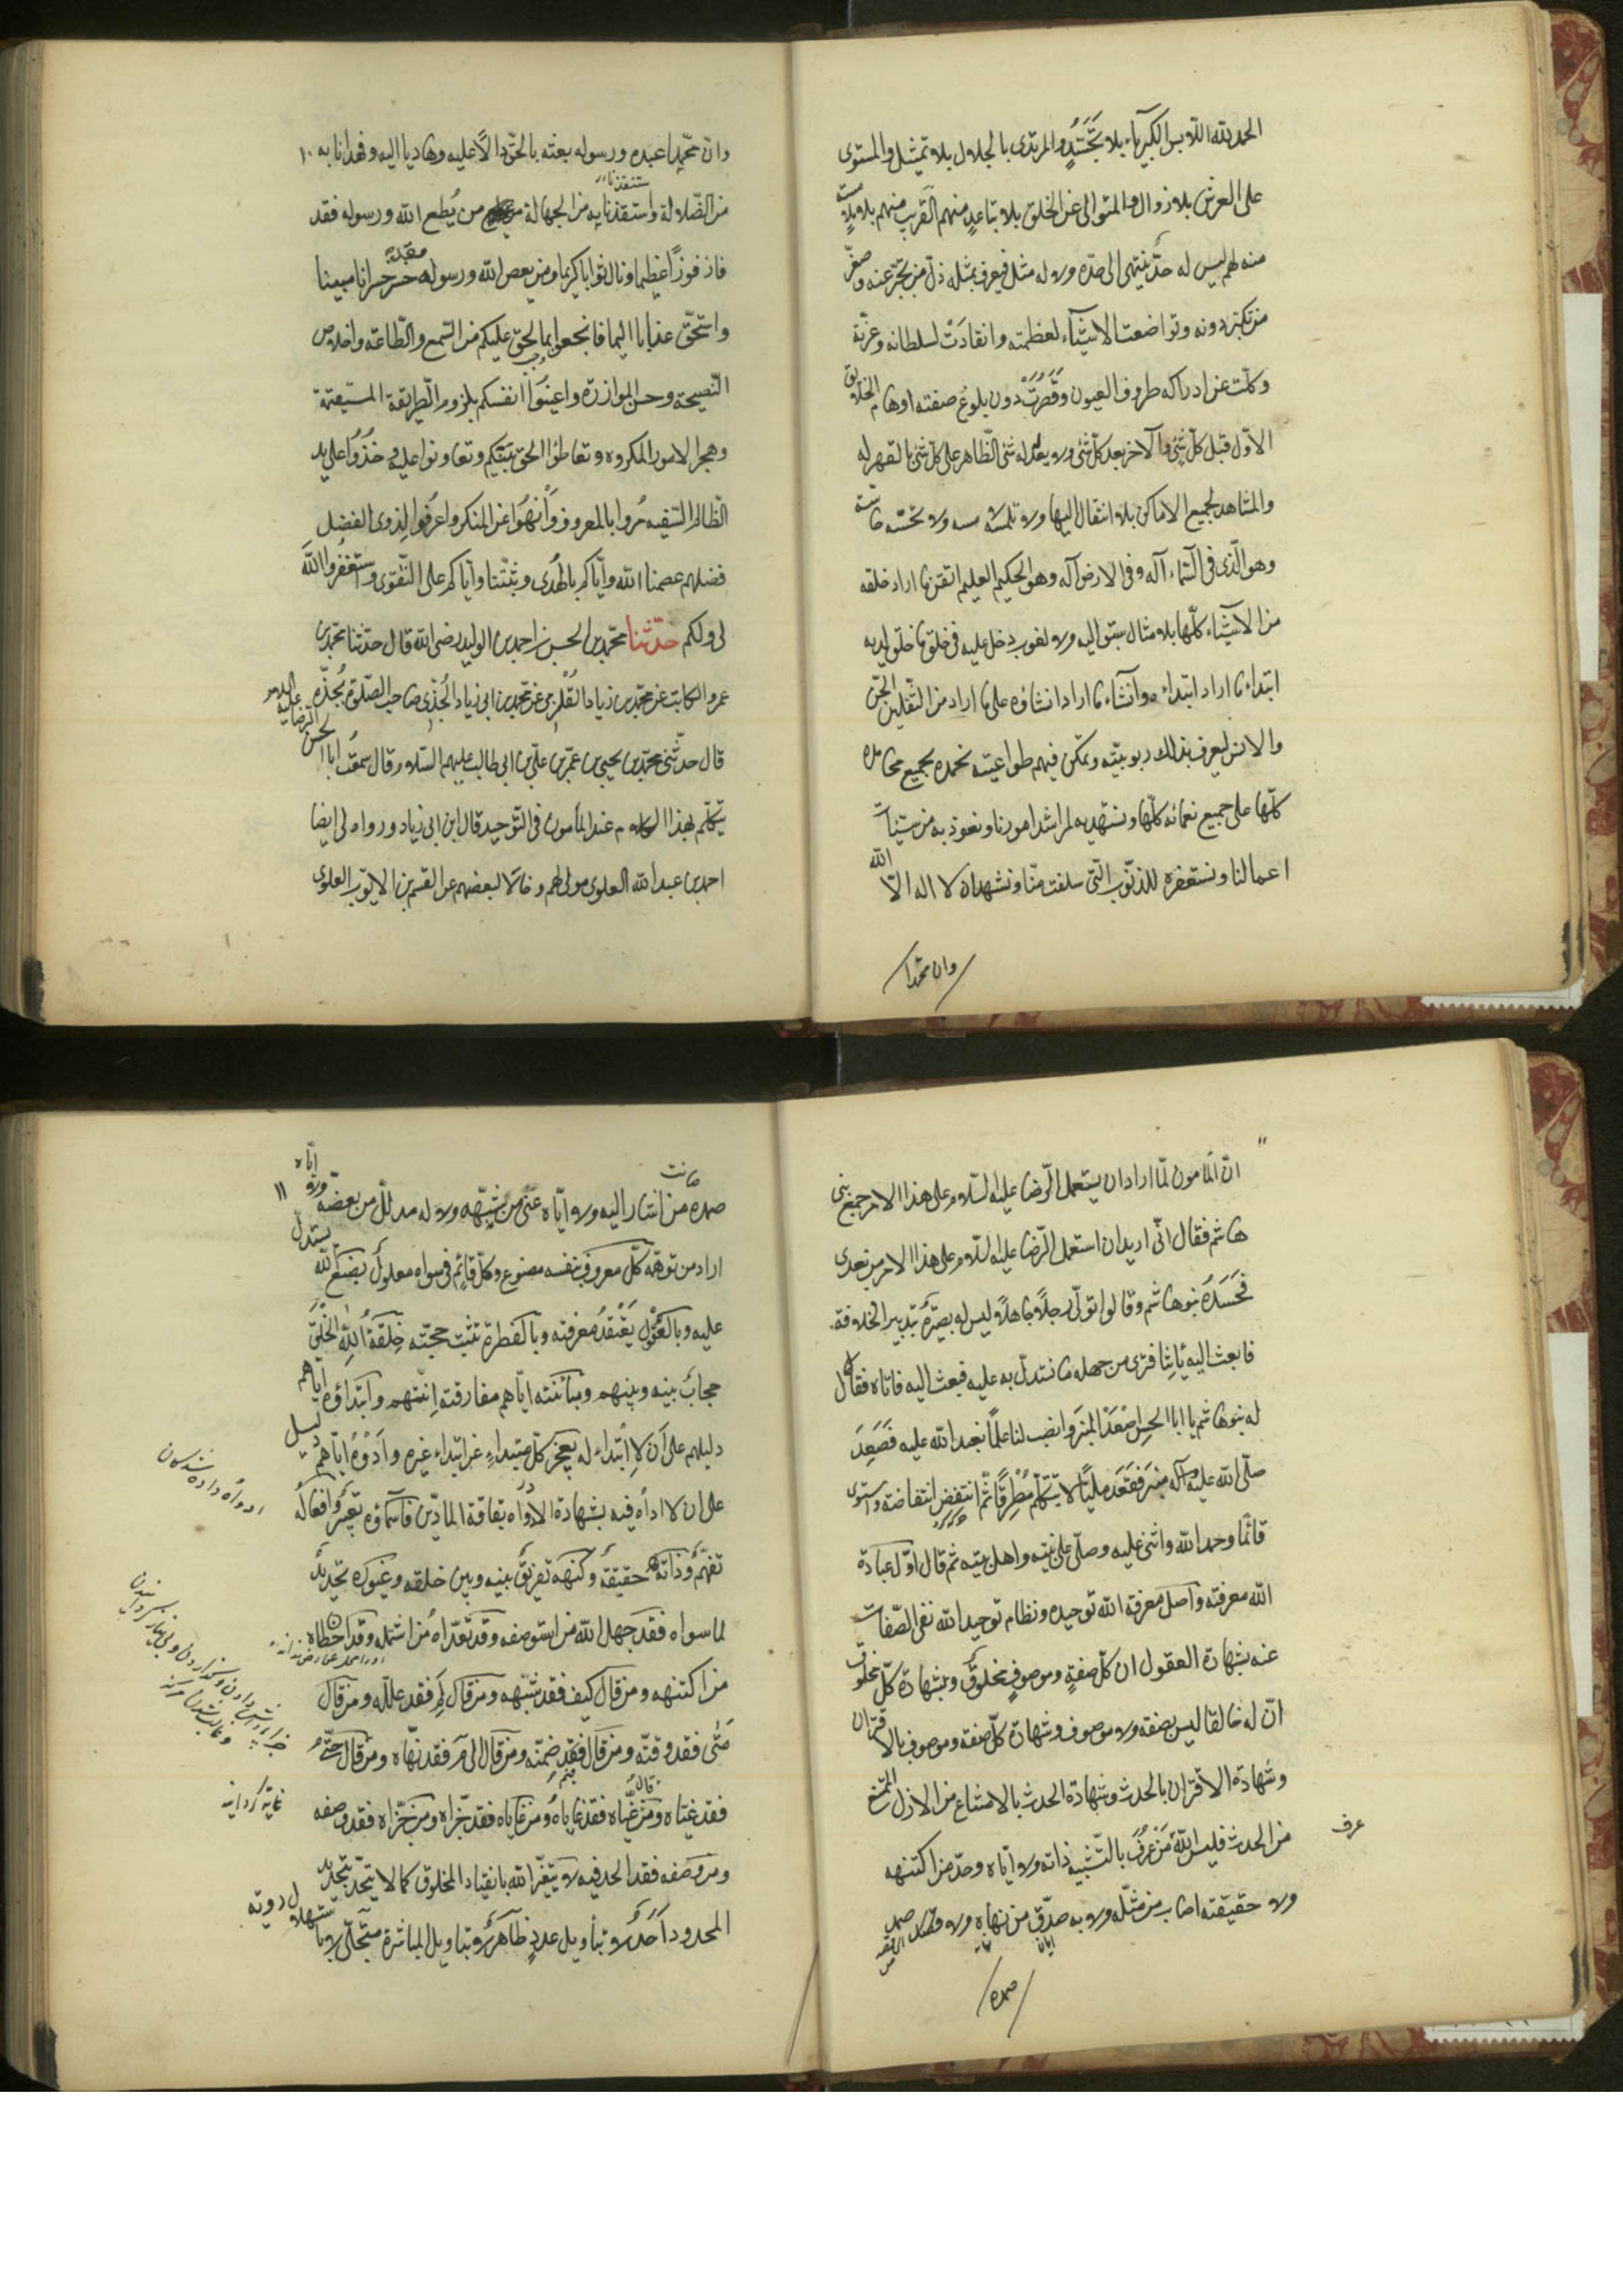 الحمد لله اللابس الكبرياء بلا تجسّد والمرتدى بالجلال بلا تمثيل والمستوى
على العرش بلا زوال والمتعالى عن الخلق بلا تباعد منهم القريب منهم بلا ملامسة
منه لهم ليس له حدّ ينتهى الى حدّه ولا له مثل فيعرف بمثله ذلّ من تجبّر عنه وصغر
من تكبّر دونه وتواضعت الاشياء لعظمته وانقادت لسلطانه وعزّته
وكلّت عن ادراكه طروف العيون وقصرت دون بلوغ صفته اوهام الخلايق
الاوّل قبل كلّ شئ والآخر بعد كلّ شئ ولا يعدله شئ الظّاهر على كلّ شئ بالقهر له
والمشاهد لجميع الاماكن بلا انتقال اليها ولا تلمسه لمسه ولا تحسّه حاسّة
وهو الّذى فى السّماء آله وفى الارض آله وهو الحكيم العليم اتقن ما اراد خلقه
من الاشياء كلّها بلا مثال سبق اليه ولا لغوب دخل عليه فى خلق ما خلق لديه
ابتداء ما اراد ابتداءه وانشاء ما اراد انشاؤه على ما اراد من الثّقلين الجنّ
والانس ليعرف بذلك ربوبيّته وتمكن فيهم طواعيته نحمده بجميع محامده
كلّها على جميع نعمائه كلّها ونستهديه لمراشد امورنا ونعوذ به من سيّئات
اعمالنا ونستغفره للذنوب الّتى سلفت منّا ونشهد ان لا اله الّا الله
وان محمّدا
وانّ محمّدا عبده ورسوله بعثه بالحقّ دالّا عليه وهاديا اليه فهدانا به ١٠
من الضّلالة واستنقذنا به من الجهالة من يطع الله ورسوله فقد
فاز فوزا عظيما ونال ثوابا كريما ومن يعص الله ورسوله فقد خسر خسرانا مبينا
واستحقّ عذابا اليما فانجعوا بما يحق عليكم من السّمع والطّاعة واخلاص
النّصيحة وحسن الموازرة واعينوا انفسكم بلزوم الطّريقة المستقيمة
وهجر الامور المكروهة وتعاطوا الحق بينكم وتعاونوا عليه وخذوا على يد
الظّالم السّفيه مروا بالمعروف وانهوا عن المنكر واعرفوا لذوى الفضل
فضلهم عصمنا الله وايّاكم بالهدى وثبّتنا وايّاكم على التّقوى واستغفروا الله
لى ولكم حدّثنا محمّد بن الحسن بن احمد بن الوليد رضى الله قال حدّثنا محمّد بن
عمرو الكاتب عن محمّد بن زياد القلزمى عن محمّد بن ابى زياد الجُدّى صاحب الصّلوة بجدّه
قال حدّثنى محمّد بن يحيى بن عمر بن علىّ بن ابى طالب عليهم السّلام قال سمعت ابا الحسن الرّضا عليه السلام
يتكلّم بهذا الكلام عند المأمون فى التّوحيد قال ابن ابى زياد ورواه لى ايضا
احمد بن عبد الله العلوى مولى لهم وخالا لبعضهم عن القسم بن الايّوب العلوى
انّ المأمون لمّا اراد ان يستعمل الرّضا عليه السّلام على هذا الامر جمع بنى
هاشم فقال انّى اريد ان استعمل الرّضا عليه السّلام على هذا الامر من بعدى
فحسده بنو هاشم وقالوا تولّى رجلا جاهلا وليس له بصيرة بتدبير الخلافة
فابعث اليه يأتنا فترى من جهله ما نستدلّ به عليه فبعث اليه فاتاه فقال
له بنو هاشم يا ابا الحسن اصعد المنبر وانصب لنا علما نعبد الله عليه فصعد
صلّى الله عليه وآله منبر فقعد مليّا لا يتكلّم مطرقا ثمّ انتفض انتفاضة واستوى
قائما وحمد الله واثنى عليه وصلّى على نبيّه واهل بيته ثم قال اوّل عبادة
الله معرفته واصل معرفة الله توحيده ونظام توحيد الله نفى الصّفات
عنه بشهادة العقول ان كلّ صفة وموصوف مخلوق وبشهادة كلّ مخلوق
انّ له خالقا ليس بصفة ولا موصوف وشهادة كلّ صفة وموصوف بالاقتران
وشهادة الاقتران بالحدث وشهادة الحدث بالامتناع من الازل الممتنع
من الحدث فليس الله من عرف بالتّشبيه ذاته ولا ايّاه وحّد من اكتنهه
عرف
ولا حقيقته اصاب من مثّله ولا به صدّق من نهاه ولا صمد
صمده
صمده من اشار اليه ولا ايّاه عنى من شبّهه ولا له مدلّل من بعضه ولا ايّاه ١١
اراد من توهّمه كلّ معروف بنفسه مصنوع وكلّ قائم فى سواه معلول بصنع الله يستدلّ
عليه وبالعقول يعتقد معرفته وبالفطرة تثبت حجّته خلقة الله الخلق
حجاب بينه وبينهم ومباينته ايّاهم مفارقته انّيتهم وابتداؤه ايّاهم
دليلهم على ان لا ابتداء له بعجز كلّ مبتداء عن ابتداء غيره وادوه ايّاهم دليل
على ان لا اداة فيه بشهادة الادواة بفاقة المادّين فاسماؤه تعبير وافعاله
تفهيم وذاته حقيقة وكنهه تفريق بينه وبين خلقه وغيوره تحديد
لما سواه فقد جهل الله من استوصفه وقد تعدّاه من اشتمله وقد اخطاه
من اكتنهه ومن قال كيف فقد شبّهه ومن قال لم فقد علّله ومن قال
متى فقد وقّته ومن قال فيم فقد ضمّنه ومن قال الى م فقد نهّاه ومن قال حتّى م
فقد غيّاه ومن غيّاه فقد غاياه ومن غاياه فقد جزّاه ومن جزّاه فقد وصفه
ومن وصفه فقد الحد فيه لا يتغيّر الله بانقياد المخلوق كما لا يتحدّد بتحديد
المحدود احد لا بتأويل عدد ظاهر لا بتاويل المباشرة متجلّى لا باستهلال روية